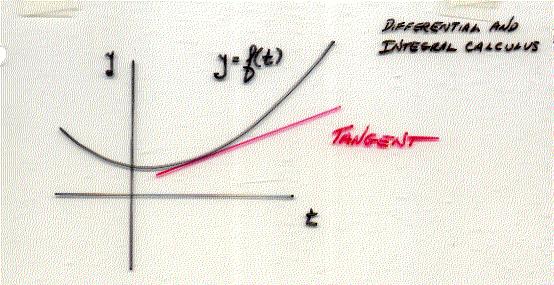 DIFFERENTIAL AND
INTEGRAL CALCULUS
y
y = f(t)
TANGENT
t